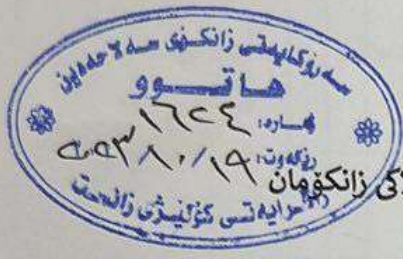 سەرۆکایەتی زانکۆی سەلاحەدین
هاتوو
ژمارە: ١٦٢٤
ڕێکەوت: ٢٠٢٣/١٠/١٩
زانکۆمان
ڕاگرایەتی کۆلێژی زانست